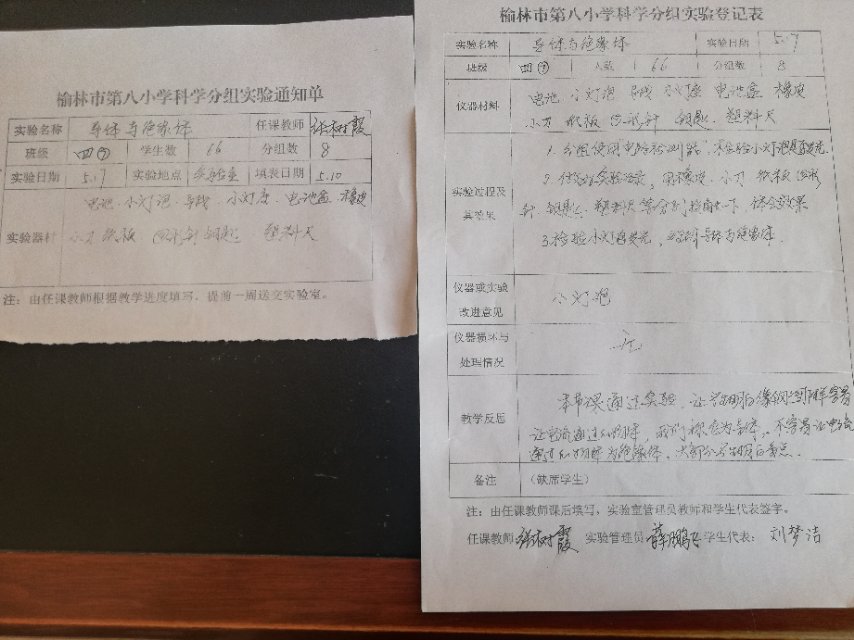 榆林市第八小学科学分组实验通知单
实验名称 导体与绝缘体 任课教师 张树霞
班级 四⑦ 学生数 66 分组数 8
实验日期 5.17 实验地点 实验室 填表日期 5.10
实验器材
电池 小灯泡 导线 小灯座 电池盒 橡皮
小刀 纸板 回形针 钥匙 塑料尺
注：由任课教师根据教学进度填写，提前一周送交实验室。
榆林市第八小学科学分组实验登记表
实验名称 导体与绝缘体 实验日期 5.17
班级 四⑦ 人数 66 分组数 8
仪器材料
电池 小灯泡 导线 小灯座 电池盒 橡皮
小刀 纸板 回形针 钥匙 塑料尺
实验过程及其结果
1.分组使用电路检测器，检验小灯泡是否发光
2. 实验 用橡皮、小刀 纸板 回形
针、钥匙、塑料尺等分别
3.检验小灯泡发光， 导体与绝缘体
仪器或实验改进意见
小灯泡
仪器损坏与处理情况
无
教学反思
本节课通过实验，让学生明白像铜这样容易
让电流通过的物体，我们称它为导体，不容易让电流
通过的物体为绝缘体，大部分学生明白重点.
备注 （缺席学生）
注：由任课教师课后填写，实验室管理员教师和学生代表签字。
任课教师 张树霞 实验管理员 薛鹏飞 学生代表： 刘梦洁